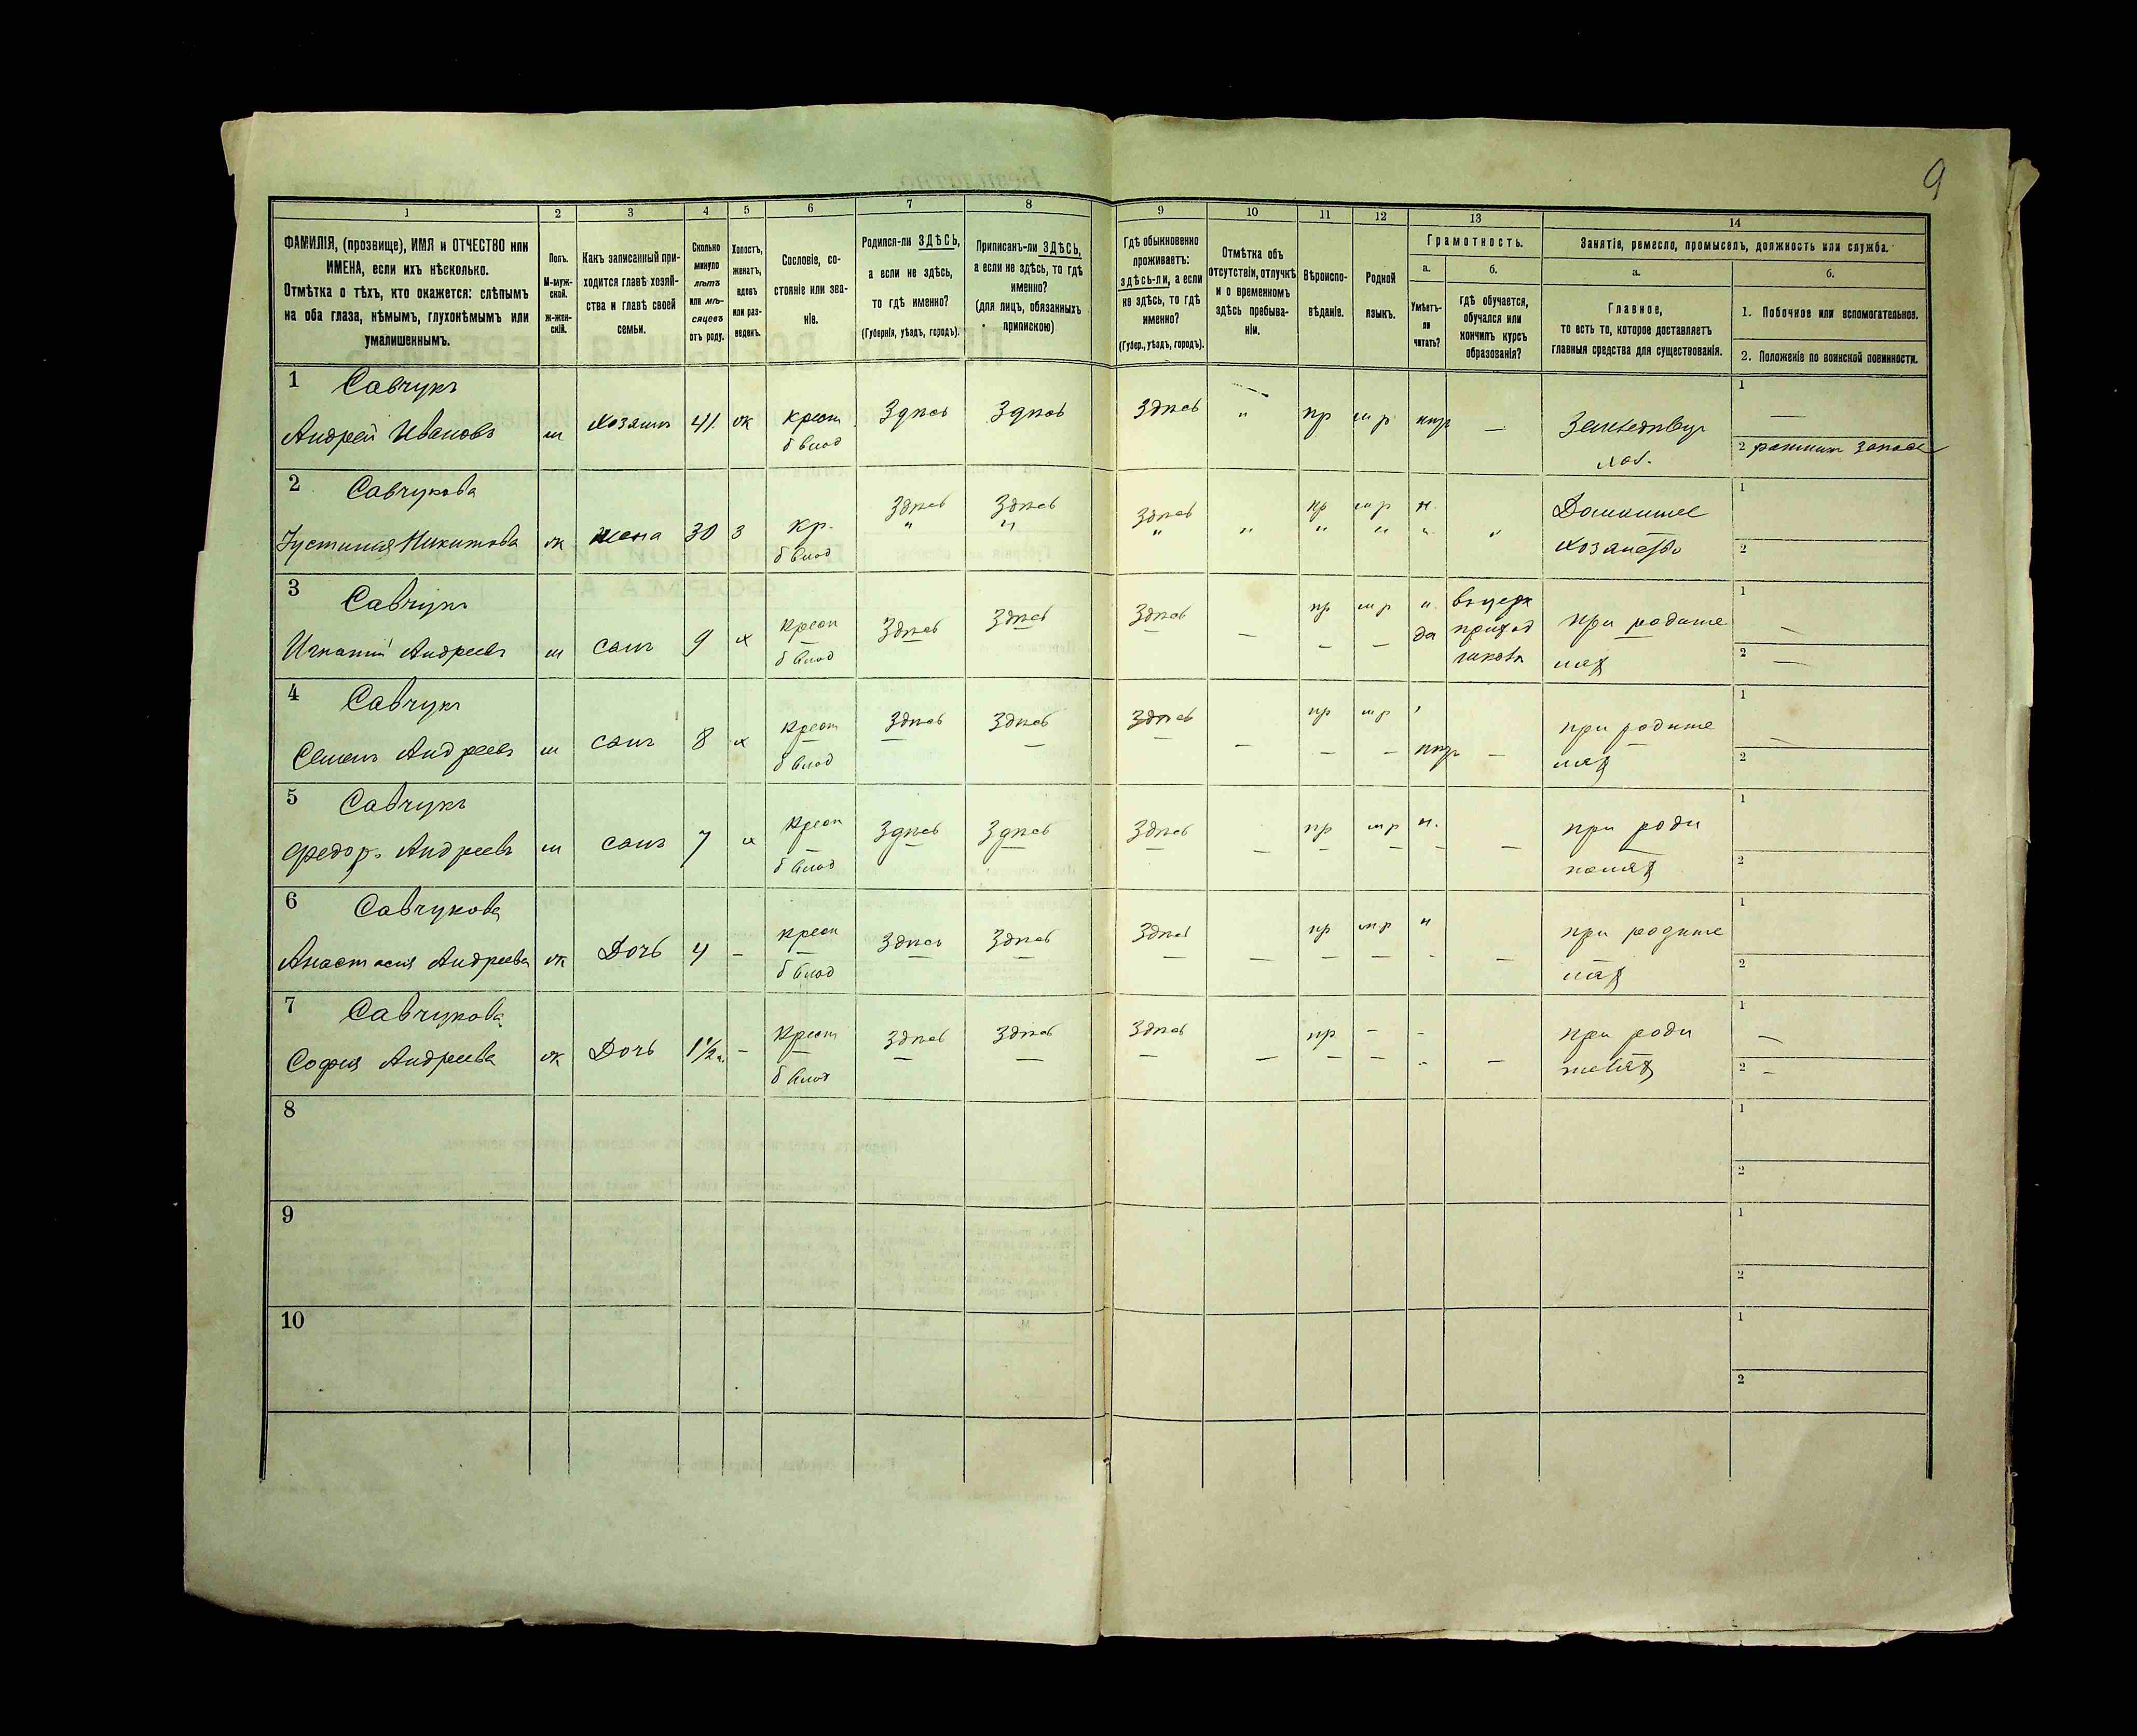 9
1 2 3 4 5 6 7 8 9 10 11 12 13 14
ФАМИЛІЯ, (прозвище), ИМЯ и ОТЧЕСТВО или
ИМЕНА, если ихъ нѣсколько.
Отмѣтка о тѣхъ, кто окажется: слѣпымъ
на оба глаза, нѣмымъ, глухонѣмымъ или
умалишеннымъ.
Полъ.
М-муж-
ской.
ж-жен-
скій.
Какъ записанный при-
ходится главѣ хозяй-
ства и главѣ своей
семьи.
Сколько
минуло
лѣтъ
или мѣ-
сяцевъ
отъ роду.
Холостъ,
женатъ,
вдовъ
или раз-
веденъ.
Сословіе, со-
стояніе или зва-
ніе.
Родился-ли ЗДѢСЬ,
а если не здѣсь,
то гдѣ именно?
(Губернія, уѣздъ, городъ).
Приписанъ-ли ЗДѢСЬ,
а если не здѣсь, то гдѣ
именно?
(для лицъ, обязанныхъ
припискою)
Гдѣ обыкновенно
проживаетъ:
здѣсь-ли, а если
не здѣсь, то гдѣ
именно?
(Губер., уѣздъ, городъ).
Отмѣтка объ
отсутствіи, отлучкѣ
и о временномъ
здѣсь пребыва-
ніи.
Вѣроиспо-
вѣданіе.
Родной
языкъ.
Грамотность.
а.
Умѣетъ-
ли
читать?
б.
гдѣ обучается,
обучался или
кончилъ курсъ
образованія?
Занятіе, ремесло, промыселъ, должность или служба.
а.
Главное,
то есть то, которое доставляетъ
главныя средства для существованія.
б.
1. Побочное или вспомогательное.
2. Положеніе по воинской повинности.
1 Савчукъ
Андрей Ивановъ м Хозяинъ 41 ж крест Здѣсь Здѣсь Здѣсь " пр м р — 1 —
б влад
2
2 Савчукова
Устинія Никитова ж жена 30 з кр. Здѣсь Здѣсь Здѣсь " пр м р н. " Домашнее 1
б влад
хозяйство 2
3 Савчукъ
Игнатій Андреевъ м сынъ 9 х крест Здѣсь Здѣсь Здѣсь — пр м р да при родите 1 —
б влад
ляхъ 2 —
4 Савчукъ
Семенъ Андреевъ м сынъ 8 х крест Здѣсь Здѣсь Здѣсь — пр м р — при родите 1 —
б влад
ляхъ 2
5 Савчукъ
Федоръ Андреевъ м сынъ 7 х крест Здѣсь Здѣсь Здѣсь — пр м р н. — при роди 1
б влад
2
6 Савчукова
Анастасія Андреева ж Дочь 4 — крест Здѣсь Здѣсь Здѣсь — пр м р н — при родите 1
б влад
ляхъ 2
7 Савчукова
Софія Андреева ж Дочь 1 1/2 — Крест Здѣсь Здѣсь Здѣсь — пр — — — при роди 1 —
б влад
теляхъ 2 —
8 1
2
9 1
2
10 1
2